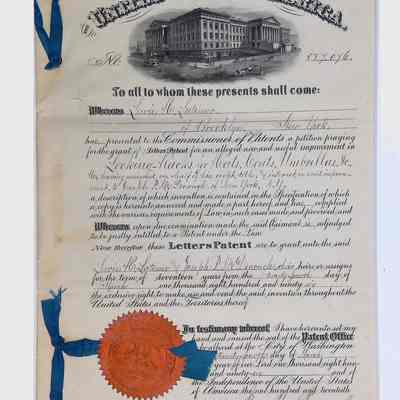 UNITED STATES OF AMERICA.
No. 557,076.
To all to whom these presents shall come:
Whereas Lewis H. Latimer
of Brooklyn, New York,
has presented to the Commissioner of Patents a petition praying
for the grant of Letters Patent for an alleged new and useful improvement in
Locking-Racks for Hats, Coats, Umbrellas, &c.
He having assigned one-half of his right, title, & interest in said improve-
ment to Joseph P. McDonough, of New York, N.Y.,
a description of which invention is contained in the Specification of which
a copy is hereunto annexed and made a part hereof, and has complied
with the various requirements of Law in such cases made and provided, and
Whereas upon due examination made the said Claimant is adjudged
to be justly entitled to a Patent under the Law.
Now therefore these Letters Patent are to grant unto the said
Lewis H. Latimer & Joseph P. McDonough, their heirs or assigns
for the term of seventeen years from the day of
one thousand eight hundred and ninety-six
the exclusive right to make, use and vend the said invention throughout the
United States and the Territories thereof.
In testimony whereof I have hereunto set my
hand and caused the seal of the Patent Office
to be affixed at the City of Washington
this day of
in the year of our Lord one thousand eight hun-
dred and ninety-six and of
the Independence of the United States
of America the one hundred and twentieth